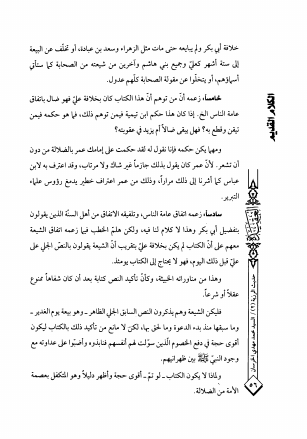 خلافة أبي بكر ولم يبايعه حتى مات مثل الزهراء وسعد بن عبادة، أو تخلّف عن البيعة
إلى ستة أشهر كعليّ وجميع بني هاشم وآخرين من شيعته من الصحابة كما ستأتي
أسماؤهم، أو يتخلّوا عن مقولة الصحابة كلّهم عدول.
خامساً: زعمه أنّ من توهم أنّ هذا الكتاب كان بخلافة عليّ فهو ضال باتفاق
عامة الناس الخ. إذا كان هذا حكم ابن تيمية فيمن توهم ذلك، فما هو حكمه فيمن
تيقن وقطع به؟ فهل يبقى ضالاً أم يزيد في عقوبته؟
ومهما يكن حكمه فإنا نقول له لقد حكمت على إمامك عمر بالضلالة من دون
أن تشعر. لأنّ عمر كان يقول بذلك جازماً غير شاك ولا مرتاب، وقد اعترف به لابن
عباس كما أشرنا إلى ذلك مراراً، وذلك من عمر اعتراف خطير يدمغ رؤوس علماء
التبرير.
سادساً: زعمه اتفاق عامة الناس، وتلفيقه الاتفاق من أهل السنّة الذين يقولون
بتفضيل أبي بكر وهذا لا كلام لنا فيه، ولكن هلمّ الخطب فيما زعمه اتفاق الشيعة
معهم على أنّ الكتاب لم يكن بخلافة عليّ بتقريب أنّ الشيعة يقولون بالنصّ الجلي على
عليّ قبل ذلك اليوم، فهو لا يحتاج إلى كتاب يومئذ.
وهذا من مناوراته الخبيثة، وكأنّ تأكيد النص كتابة بعد أن كان شفاهاً ممنوع
عقلاً أو شرعاً.
فليكن الشيعة وهم يذكرون النص السابق الجلي الظاهر ـ وهو بيعة يوم الغدير ـ
وما سبقها منذ بدء الدعوة وما لحق بها، لكن لا مانع من تأكيد ذلك بالكتاب ليكون
أقوى حجة في دفع الخصوم الّذين سوّلت لهم أنفسهم فنابذوه وأصبوا على عداوته مع
وجود النبيّ ﷺ بين ظهرانيهم.
ولماذا لا يكون الكتاب ـ لو تمّ ـ أقوى حجة وأظهر دليلاً وهو المتكفل بعصمة
الأمة من الضلالة.
الكلام القديم
حديث الرزية (١) / السيد محمد مهدي الخرسان
٥٦